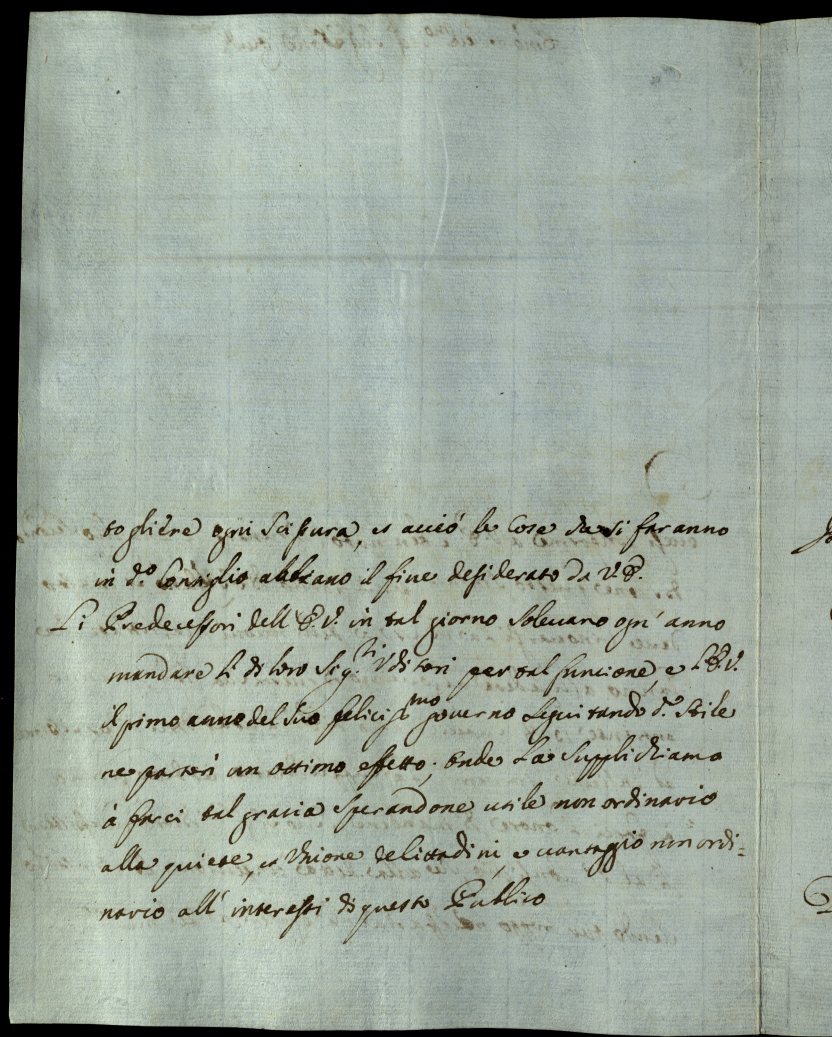 togliere ogni scissura, et acciò le Cose che si faranno
in d.º Consiglio abbiano il fine desiderato da V. E.
Li Predecessori dell'E. V. in tal giorno solevano ogn'anno
mandare li di loro Sig.ri Uditori per tal funcione, e l'E. V.
il primo anno del suo felicissmo governo seguitando d.º stile
ne partorì un ottimo effetto; onde La supplichiamo
à farci tal gracia sperandone utile non ordinario
alla quiete, et Unione de Cittadini, e vantaggio non ordi=
nario all'interessi di questo Publico